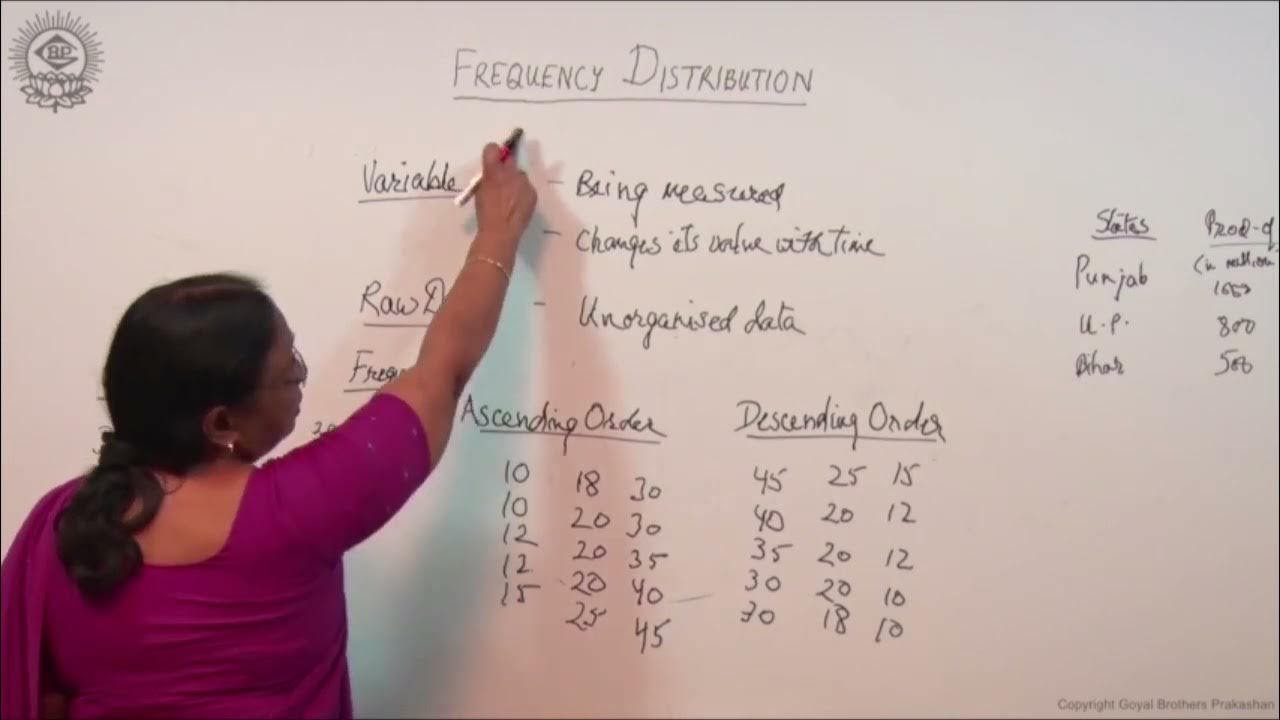 GBP
FREQUENCY DISTRIBUTION
Variable - Being measured
- Changes its value with time
Raw D - Unorganised data
Frequ
Ascending Order
10 18 30
10 20 30
12 20 35
12 20 40
15 25 45
Descending Order
45 25 15
40 20 12
35 20 12
30 20 10
30 18 10
States Prod-of
(in million
Punjab
U.P. 800
Bihar 500
Copyright Goyal Brothers Prakashan